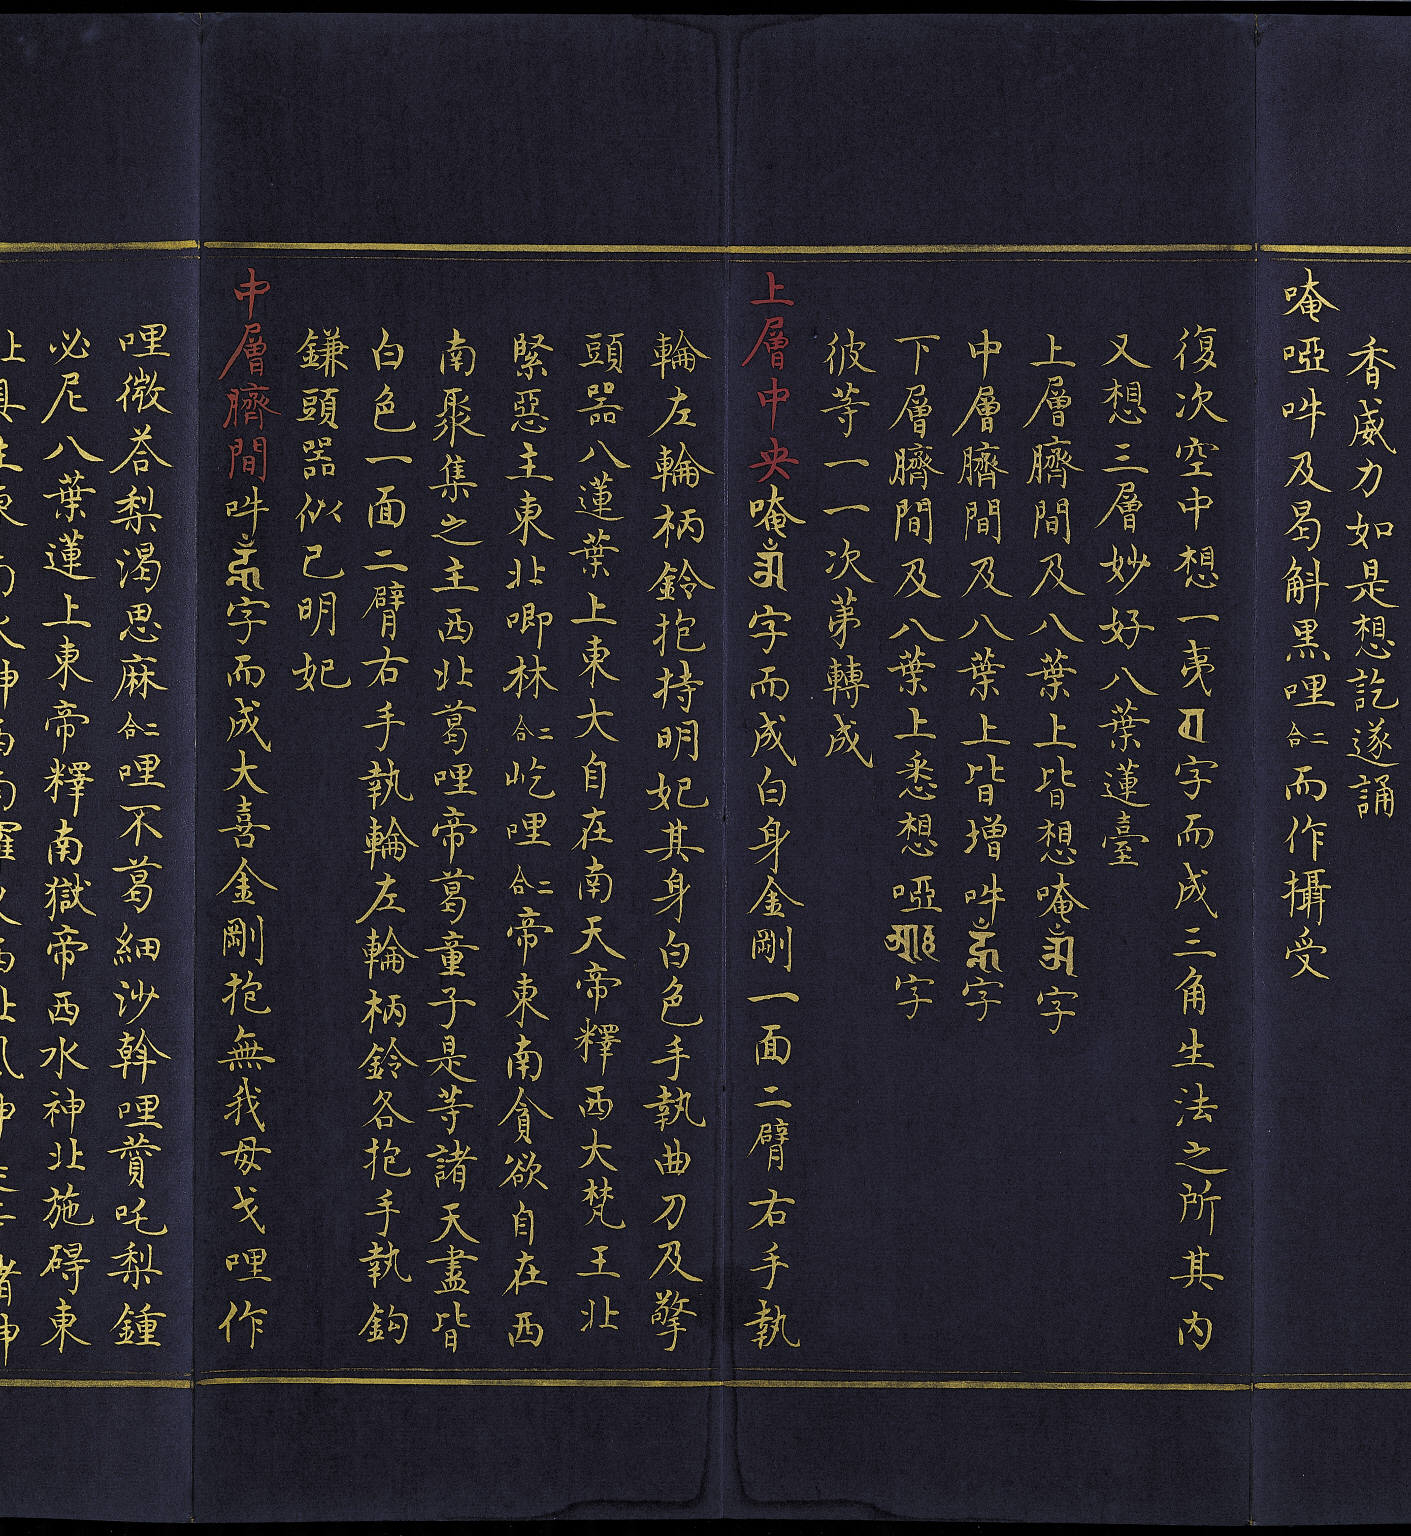 香威力如是想訖遂誦
唵啞吽及曷斛黑哩二合而作攝受
復次空中想一夷字而成三角生法之所其內
又想三層妙好八葉蓮臺
上層臍間及八葉上皆想唵字
中層臍間及八葉上皆增吽字
下層臍間及八葉上悉想啞字
彼等一一次第轉成
上層中央唵字而成白身金剛一面二臂右手執
輪左輪柄鈴抱持明妃其身白色手執曲刀及擎
頭器八蓮葉上東大自在南天帝釋西大梵王北
緊惡主東北唧林二合屹哩二合帝東南貪欲自在西
南聚集之主西北葛哩帝葛童子是等諸天盡皆
白色一面二臂右手執輪左輪柄鈴各抱手執鈎
鎌頭器似己明妃
中層臍間吽字而成大喜金剛抱無我母戈哩作
哩微荅梨渴思麻二合哩不葛細沙斡哩賛吒梨鍾
必尼八葉蓮上東帝釋南獄帝西水神北施碍東